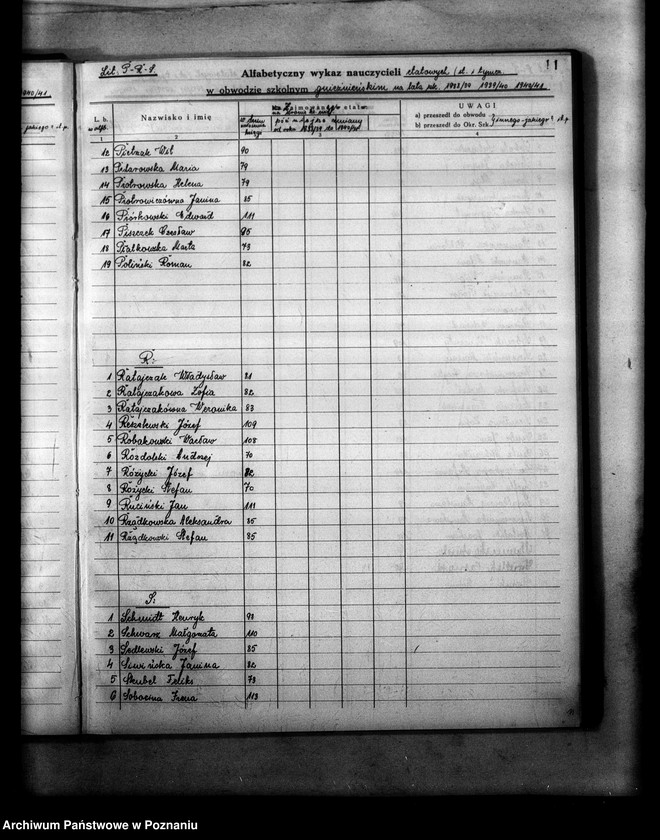 Lit. P-R-S
11
Alfabetyczny wykaz nauczycieli etatowych (st. i tymcz.
w obwodzie szkolnym gnieźnieńskim na lata szk. 1938/39 1939/40 1940/41
L. b.
Nazwisko i imię
UWAGI
a) przeszedł do obwodu
b) przeszedł do Okr. Szk.
innego-jakiego i t. p.
1
2
3
4
12 Pielrzak Wit 90
13 Pilarowska Maria 79
14 Piotrowska Helena 79
15 Piotrowiczówna Janina 85
16 Piórkowski Edward 111
17 Piszczek Czesław 95
18 Piałkowska Marta 73
19 Poliński Roman 82
R:
1 Ratajczak Władysław 81
2 Ratajczakowa Zofia 82
3 Ratajczakówna Weronika 83
4 Reszelewski Józef 109
5 Robakowski Wacław 108
6 Rozdolski Andrzej 70
7 Różycki Józef 82
8 Różycki Stefan 70
9 Ruciński Jan 111
10 Rządkowska Aleksandra 85
11 Rządkowski Stefan 85
S:
1 Schmidt Henryk
2 Schwarz Małgorzata 110
3 Sedlewski Józef 85
4 Siwińska Janina 82
5 Skubel Feliks 73
6 Sobocina Irena 113
Archiwum Państwowe w Poznaniu